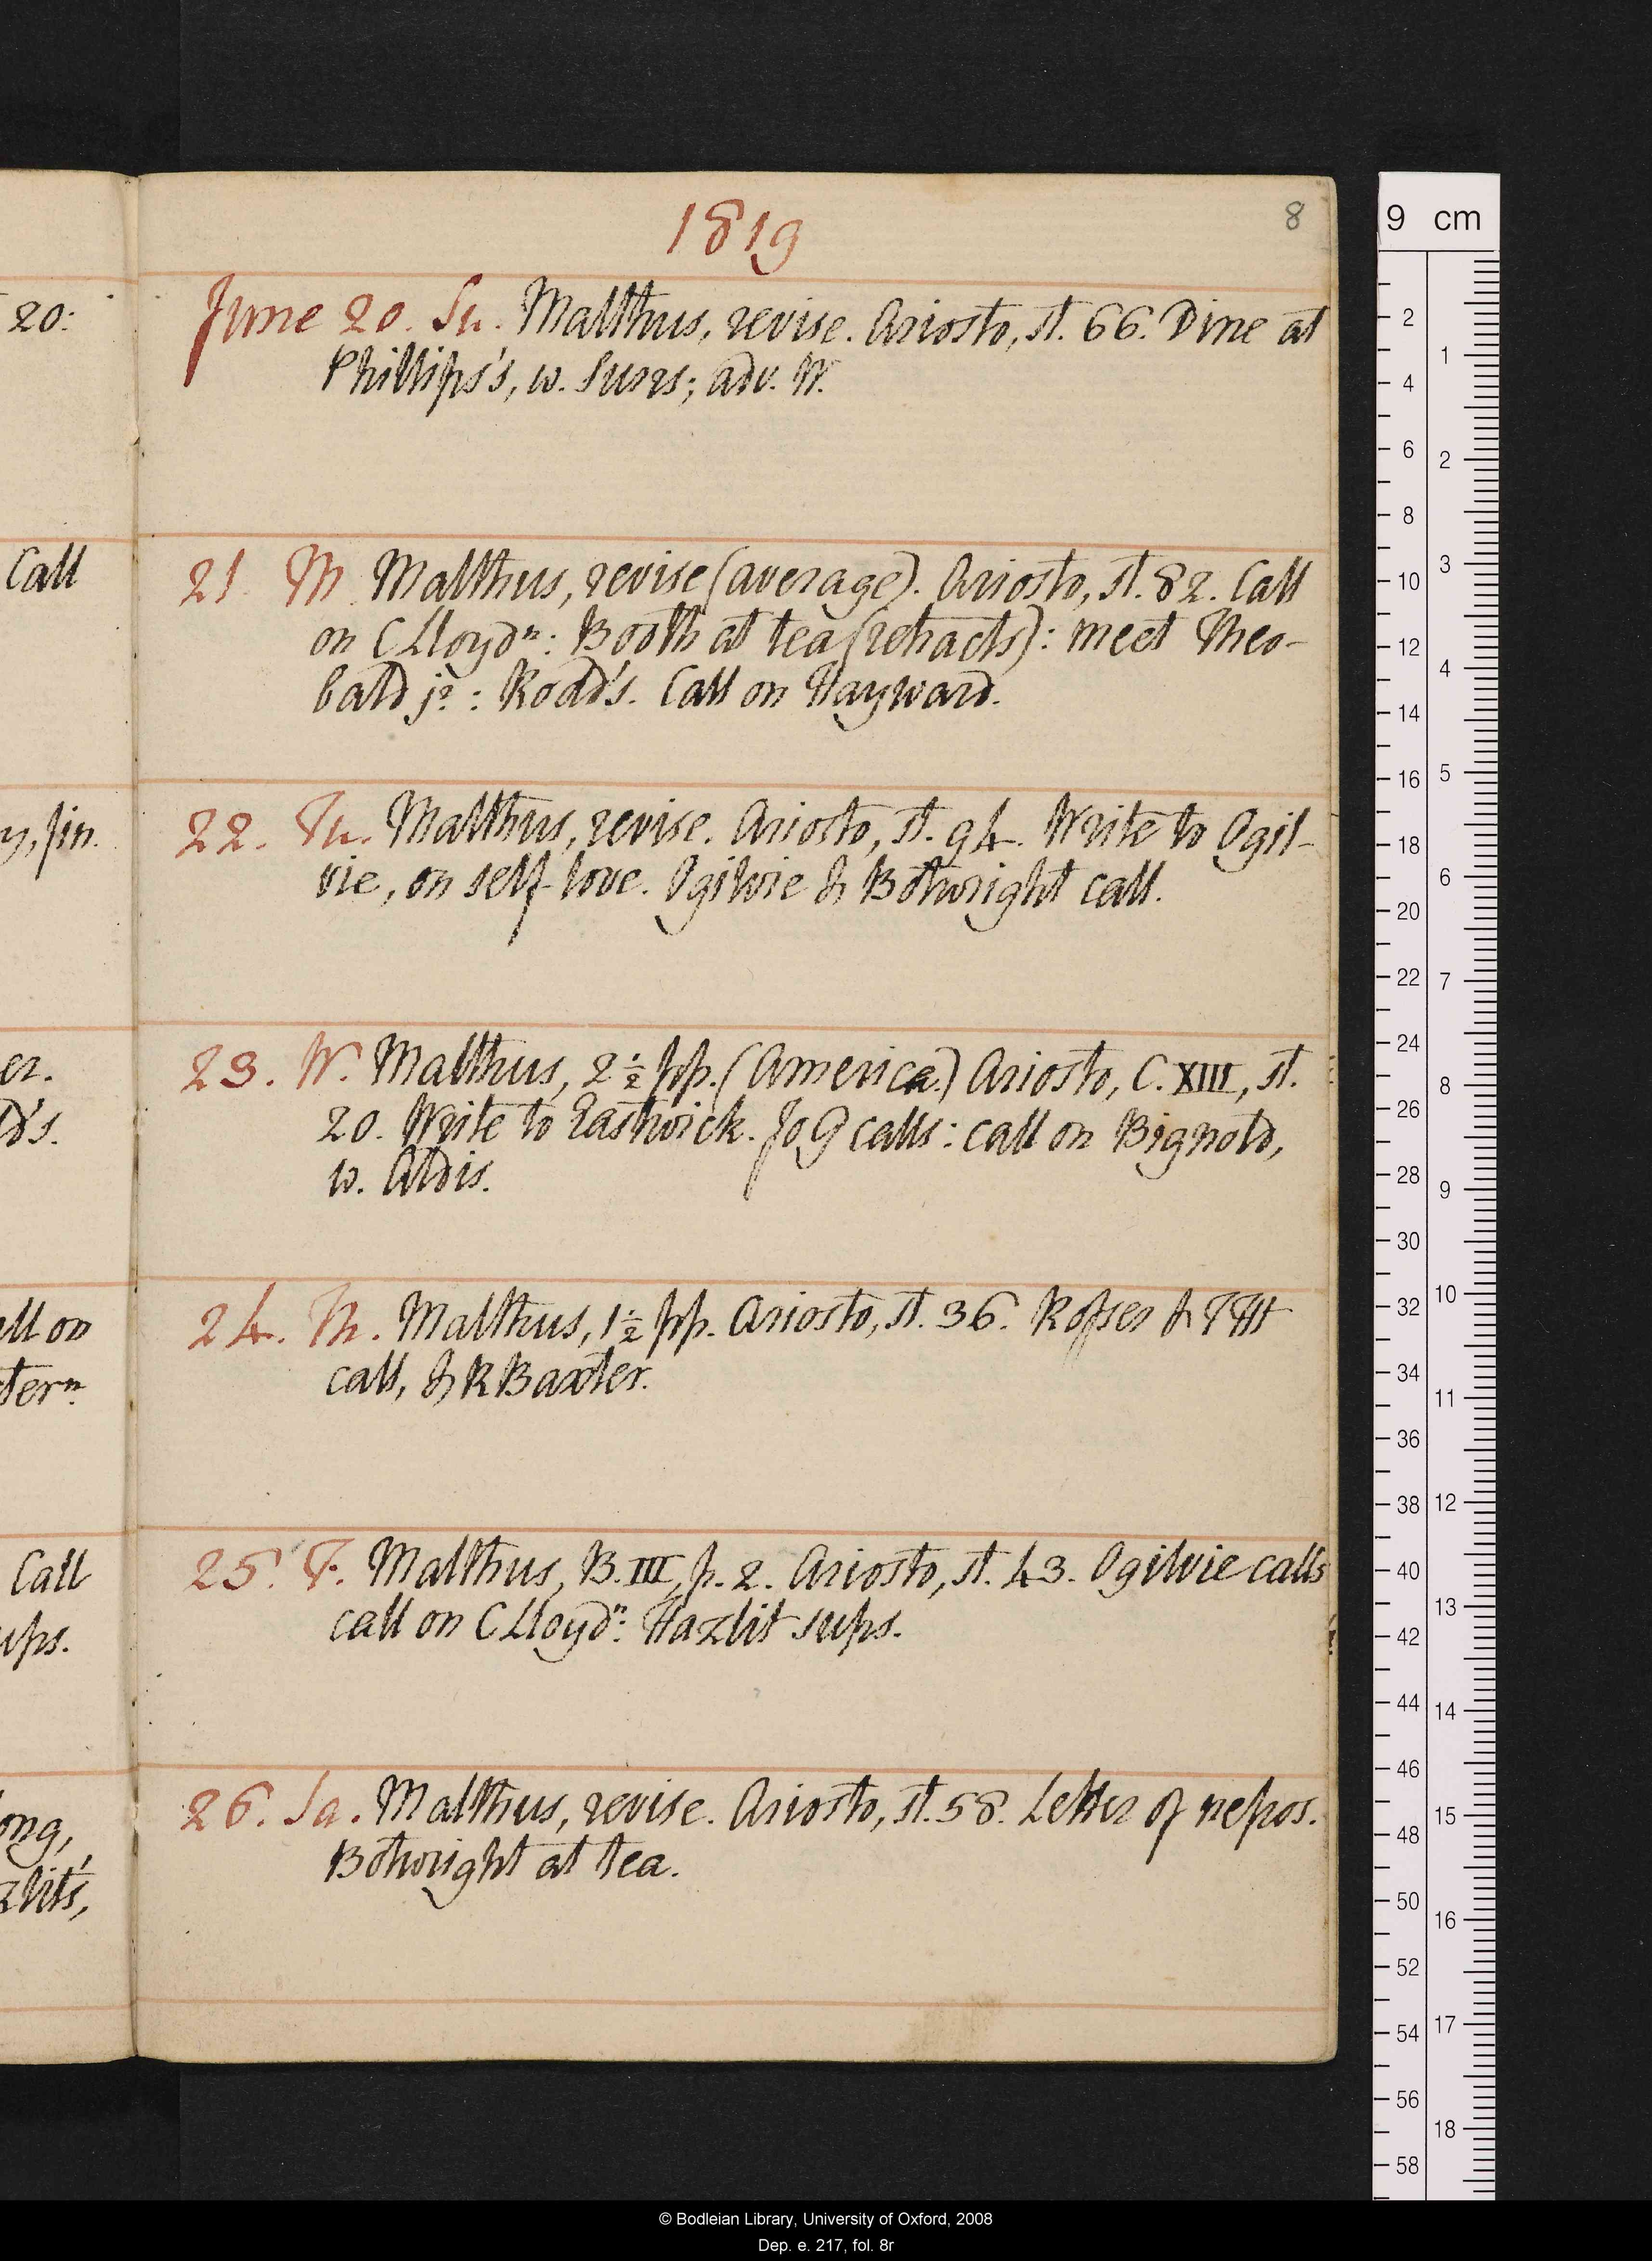 1819
8
20:
June 20. Su. Malthus, revise. Ariosto, st. 66. Dine at
Phillips's, w. Surrs; adv. W.
Call
21. M. Malthus, revise (average). Ariosto, st. 82. Call
on CLloydⁿ: Booth at tea (retracts): meet Theo-
bald jʳ: Rodd's. Call on Hayward.
y, fin.
22. Tu. Malthus, revise. Ariosto, st. 94. Write to Ogil-
vie, on self-love. Ogilvie & Botwright call.
er.
d's.
23. W. Malthus, 2½ pp. (America.) Ariosto, C. XIII, st.
20. Write to Eastwick. JoG calls: call on Bignold,
w. Aldis.
ll on
terⁿ.
24. Th. Malthus, 1½ pp. Ariosto, st. 36. Rosser & THt
call, & RBaxter.
Call
ups.
25. F. Malthus, B. III, p. 2. Ariosto, st. 43. Ogilvie calls
call on CLloydⁿ: Hazlit sups.
ong,
zlit's,
26. Sa. Malthus, revise. Ariosto, st. 58. Letter of repos.
Botwright at tea.
9 cm
2
4
6
8
10
12
14
16
18
20
22
24
26
28
30
32
34
36
38
40
42
44
46
48
50
52
54
56
58
1
2
3
4
5
6
7
8
9
10
11
12
13
14
15
16
17
18
© Bodleian Library, University of Oxford, 2008
Dep. e. 217, fol. 8r